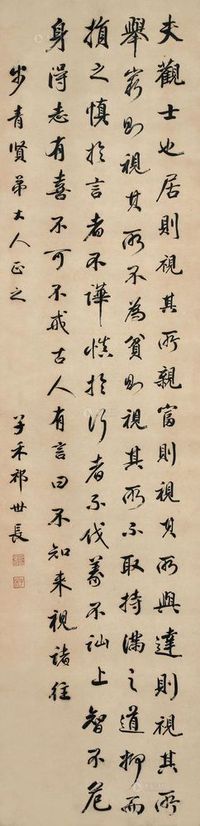 夫觀士也居則視其所親富則視其所與達則視其所
舉窮則視其所不為貧則視其所不取持滿之道抑而
損之慎於言者不譁慎於行者不伐義不訕上智不危
身得志有喜不可不戒古人有言曰不知來視諸往
少青賢弟大人正之
子禾祁世長